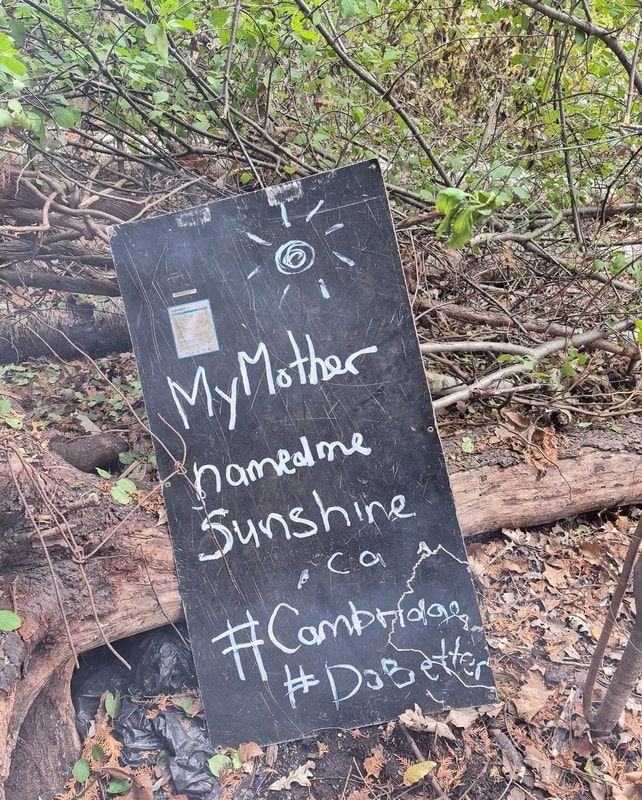 My Mother
named me
Sunshine
.ca
#Cambridge
#DoBetter